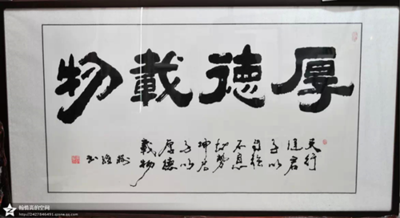 厚德載物
天行
健君
子以
自强
不息
地势
坤君
子以
厚德
載物
书